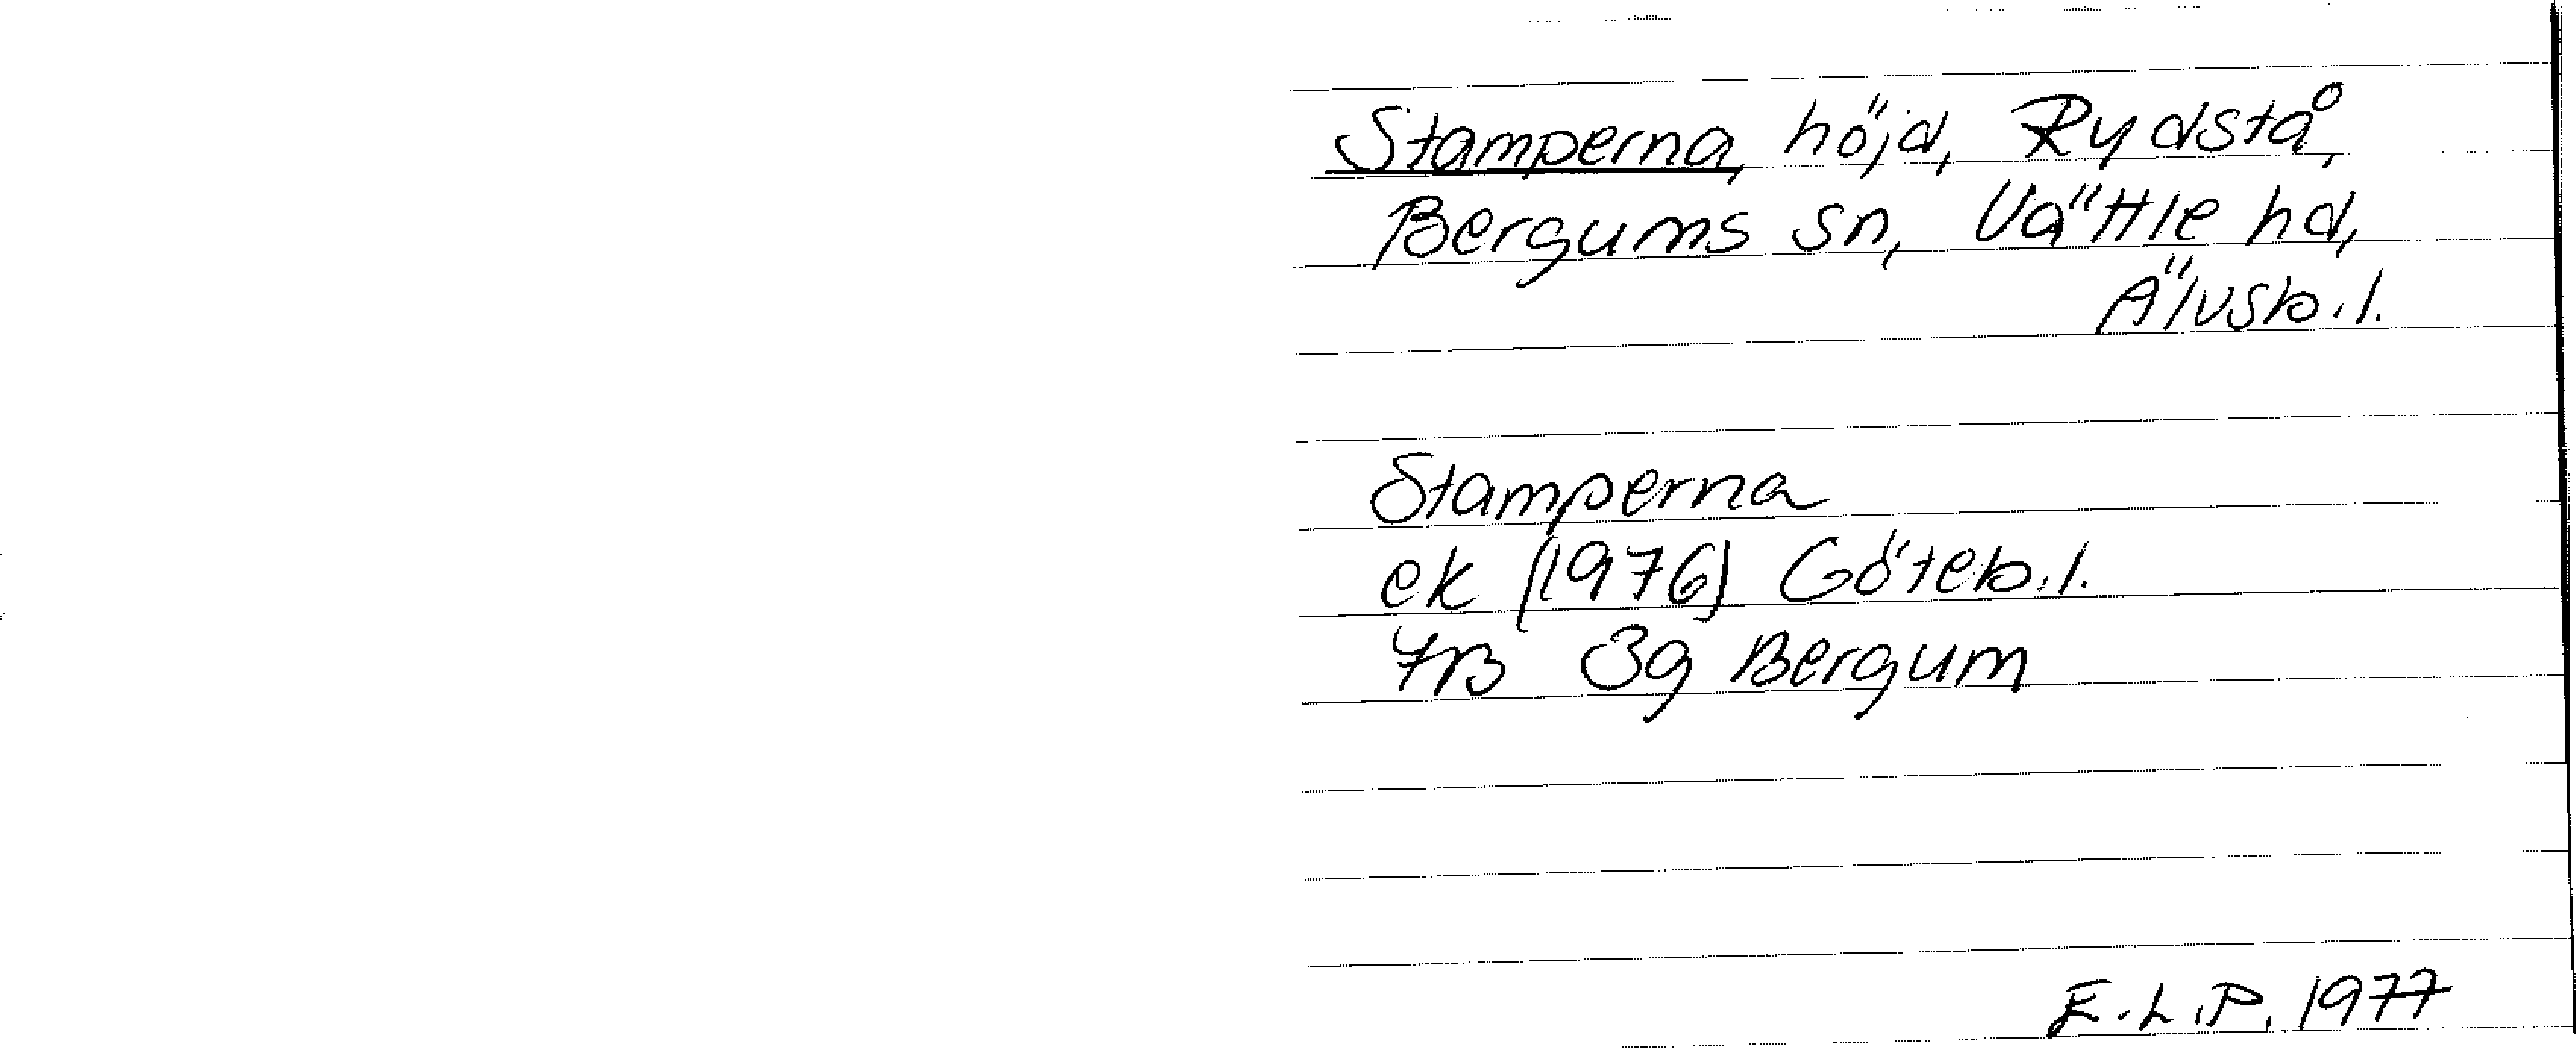 Stamperna, höjd, Rydstå,
Bergums sn, Vättle hd,
Älvsb.l.
Stamperna
ek (1976) Göteb.l.
7B 3g Bergum
E.L.P. 1977